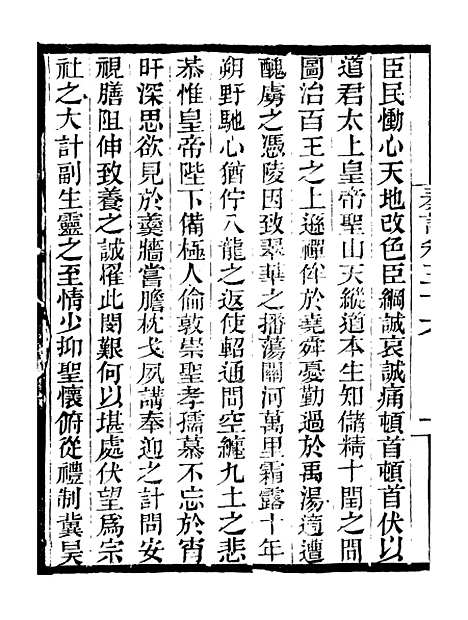 臣民慟心天地改色臣綱誠哀誠痛頓首頓首伏以
道君太上皇帝聖山天縱道本生知儲精十閏之間
圖治百王之上遜禪侔於堯舜憂勤過於禹湯適遭
醜虜之憑陵因致翠華之播蕩關河萬里霜露十年
朔野馳心猶佇八龍之返使軺通問空纏九土之悲
恭惟皇帝陛下備極人倫敦崇聖孝孺慕不忘於宵
旰深思欲見於羹牆嘗膽枕戈夙講奉迎之計問安
視膳阻伸致養之誠罹此閔艱何以堪處伏望爲宗
社之大計副生靈之至情少抑聖懷俯從禮制冀昊